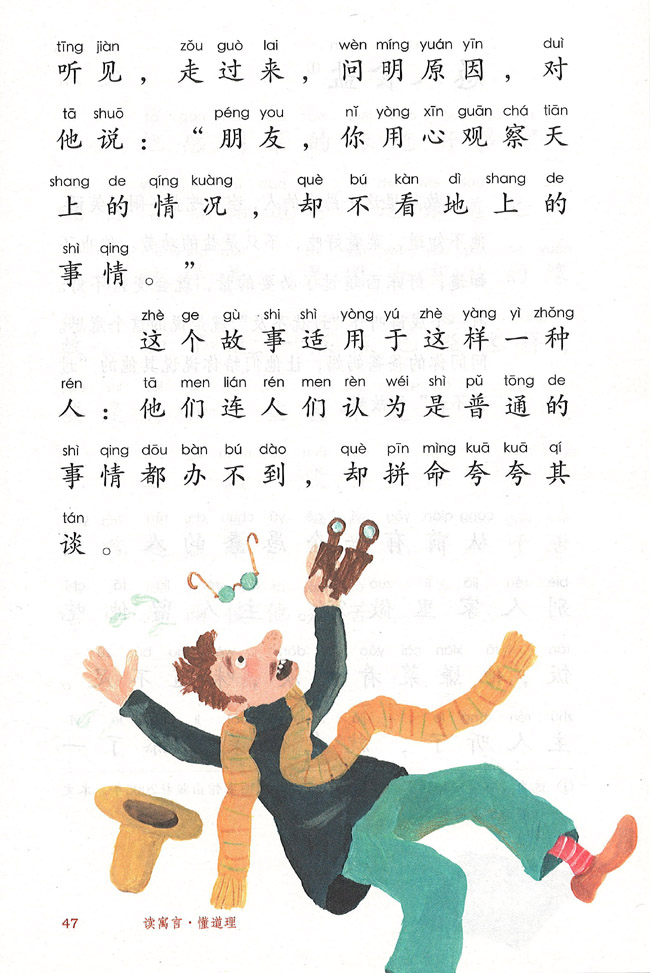 tīng jiàn zǒu guò lai wèn míng yuán yīn duì
听见，走过来，问明原因，对
tā shuō péng you nǐ yòng xīn guān chá tiān
他说：“朋友，你用心观察天
shang de qíng kuàng què bú kàn dì shang de
上的情况，却不看地上的
shì qing
事情。”
zhè ge gù shi shì yòng yú zhè yàng yì zhǒng
这个故事适用于这样一种
rén tā men lián rén men rèn wéi shì pǔ tōng de
人：他们连人们认为是普通的
shì qing dōu bàn bú dào què pīn mìng kuā kuā qí
事情都办不到，却拼命夸夸其
tán
谈。
47 读寓言·懂道理